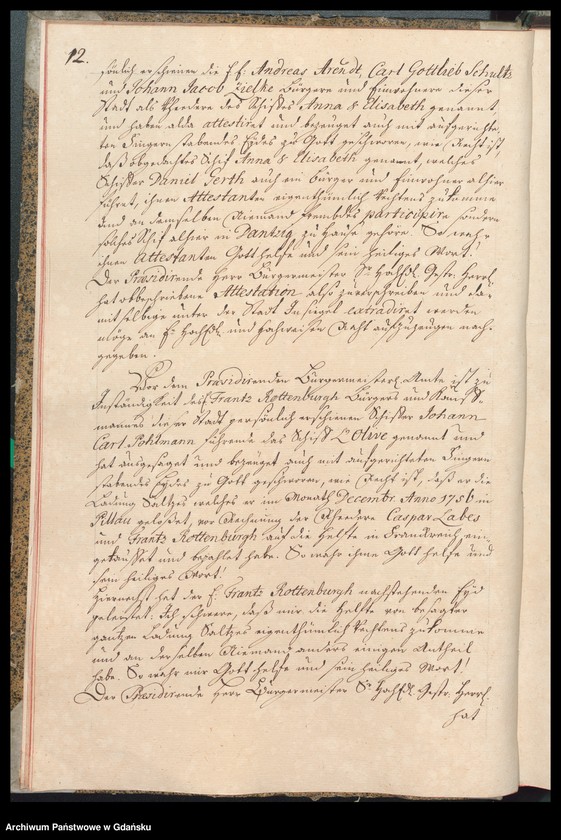 12.
sönlich erschienen die H H: Andreas Arendt, Carl Gottlieb Schultz
und Johann Jacob Zielke Bürgere und Einwohnere dieser
Stadt als Rheedere des Schiffes Anna & Elisabeth genannt,
und haben alda attestiret und bezeuget auch mit aufgerichte-
ten Fingern stabendes Eides zu Gott geschworen, wie Recht ist,
daß obgedachtes Schif Anna & Elisabeth genannt, welches
Schiffer Daniel Gerth auch ein Bürger und Einwohner alhier
führet, ihnen Attestanten eigenthümlich Rechtens zukomme
und an demselben Niemand frembdes participire sondern
solches Schif alhier in Dantzig zu Hause gehöre. So wahr
ihnen Attestanten Gott helfe und sein heiliges Wort!
Der Præsidirende Herr Bürgermeister Sr. Hochedl. Gestr. Herrl.
hat obbeschriebene Attestation also zu verschreiben und da-
mit selbige unter der Stadt Insiegel extradiret werden
möge an E: Hochedl. und Hochweisen Raht aufzuzeugen nach-
gegeben.
Vor dem Præsidirenden Bürgermeisterl. Amte ist zu
Inständigkeit des H. Frantz Rottenburgh Bürgers und Kauff-
mannes dieser Stadt persönlich erschienen Schiffer Johann
Carl Pohlmann führende das Schiff L'Olive genannt und
hat ausgesaget und bezeuget auch mit aufgerichteten Fingern
stabendes Eydes zu Gott geschworen, wie Recht ist, daß er die
Ladung Saltzes welches er im Monath Decembr. Anno 1756 in
Pillau geloßet, vor Rechnung der Rheedere Caspar Labes
und Frantz Rottenburgh auf die Helfte in Franckreich ein-
gekauffet und bezahlet habe. So wahr ihm Gott helfe und
sein heiliges Wort!
Hiernechst hat der H. Frantz Rottenburgh nachstehenden Eyd
geleistet: Ich schwere, daß mir die Helfte von besagter
gantzen Ladung Saltzes eigenthümlich Rechtens zukomme
und an derselben Niemand anders einigen Antheil
habe. So wahr mir Gott helfe und sein heiliges Wort!
Der Præsidirende Herr Bürgermeister Sr. Hochedl. Gestr. Herrl.
hat
Archiwum Państwowe w Gdańsku